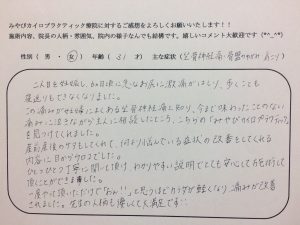 みやびカイロプラクティック療院に対するご感想をよろしくお願いいたします！！
施術内容、院長の人柄・雰囲気、院内の様子なんでも結構です。嬉しいコメント大歓迎です（*^_^*）
性別（男・女）年齢（31才）主な症状（坐骨神経痛・骨盤のゆがみ・肩こり）
二人目を妊娠し、6か月頃に急なお尻に激痛がはしり、歩くことも
寝返りもできなくなりました。
この痛みが妊婦によくある坐骨神経痛と知り、今まで味わったことのない
痛みに涙をながら主人に相談したところ、こちらの「みやびカイロプラクティック」
を見つけてくれました。
産前産後のケアもしてくれて、何より悩んでいる症状の改善をしてくれる
内容に目からウロコでした。
ひとつひとつ丁寧に聞いて頂け、わかりやすい説明でとても安心してお任せして
頂くことができました。
一度やって頂いただけで「おぉ!!」と思うほどカラダが軽くなり、痛みが改善
されました。先生の人柄も優しくて大満足です！！